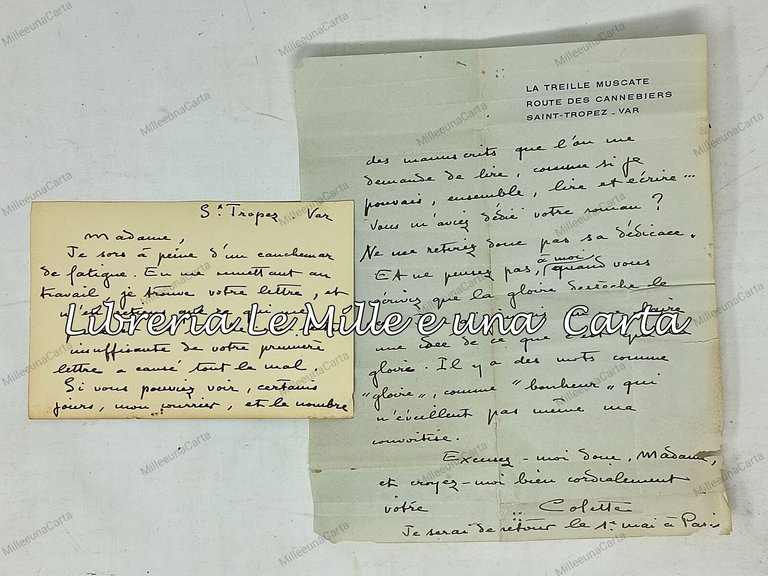 St Tropez. Var
Madame,
Je sors à peine d'un cauchemar
de fatigue. En me remettant au
travail, je trouve votre lettre, et
insuffisante de votre première
lettre a causé tout le mal
Si vous pouviez voir, certains
jours, mon courrier, et le nombre
LA TREILLE MUSCATE
ROUTE DES CANNEBIERS
SAINT-TROPEZ - VAR
des manuscrits que l'on me
demande de lire, comme si je
pouvais, ensemble, lire et écrire...
Vous m'aviez dédié votre roman ?
Ne me retirez donc pas sa dédicace.
Et ne pensez pas, à moi, quand vous
écrivez que la gloire dessèche le
une idée de ce que c'est que
gloire. Il y a des mots comme
"gloire", comme "bonheur" qui
n'éveillent pas même ma
convoitise.
Excusez-moi donc, Madame,
et croyez-moi bien cordialement
votre Colette
Je serai de retour le 1er mai à Paris
Libreria Le Mille e una Carta
MilleeunaCarta